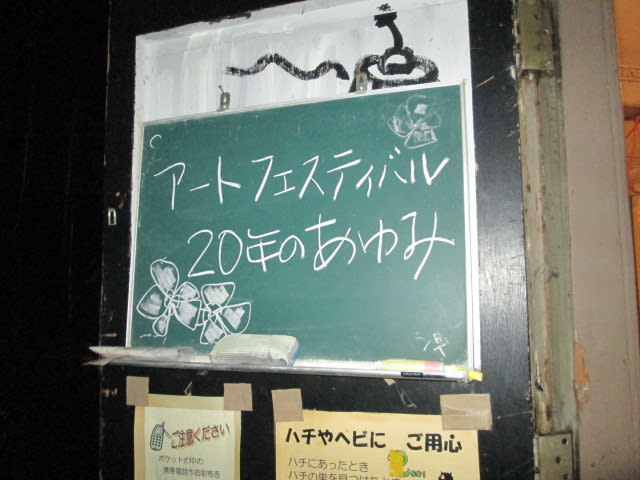 アートフェスティバル
20年のあゆみ
ご注意ください
ポケットの中の
携帯電話やお財布を
ハチやヘビに ご用心
ハチにあったとき
ハチの巣を見つけたとき